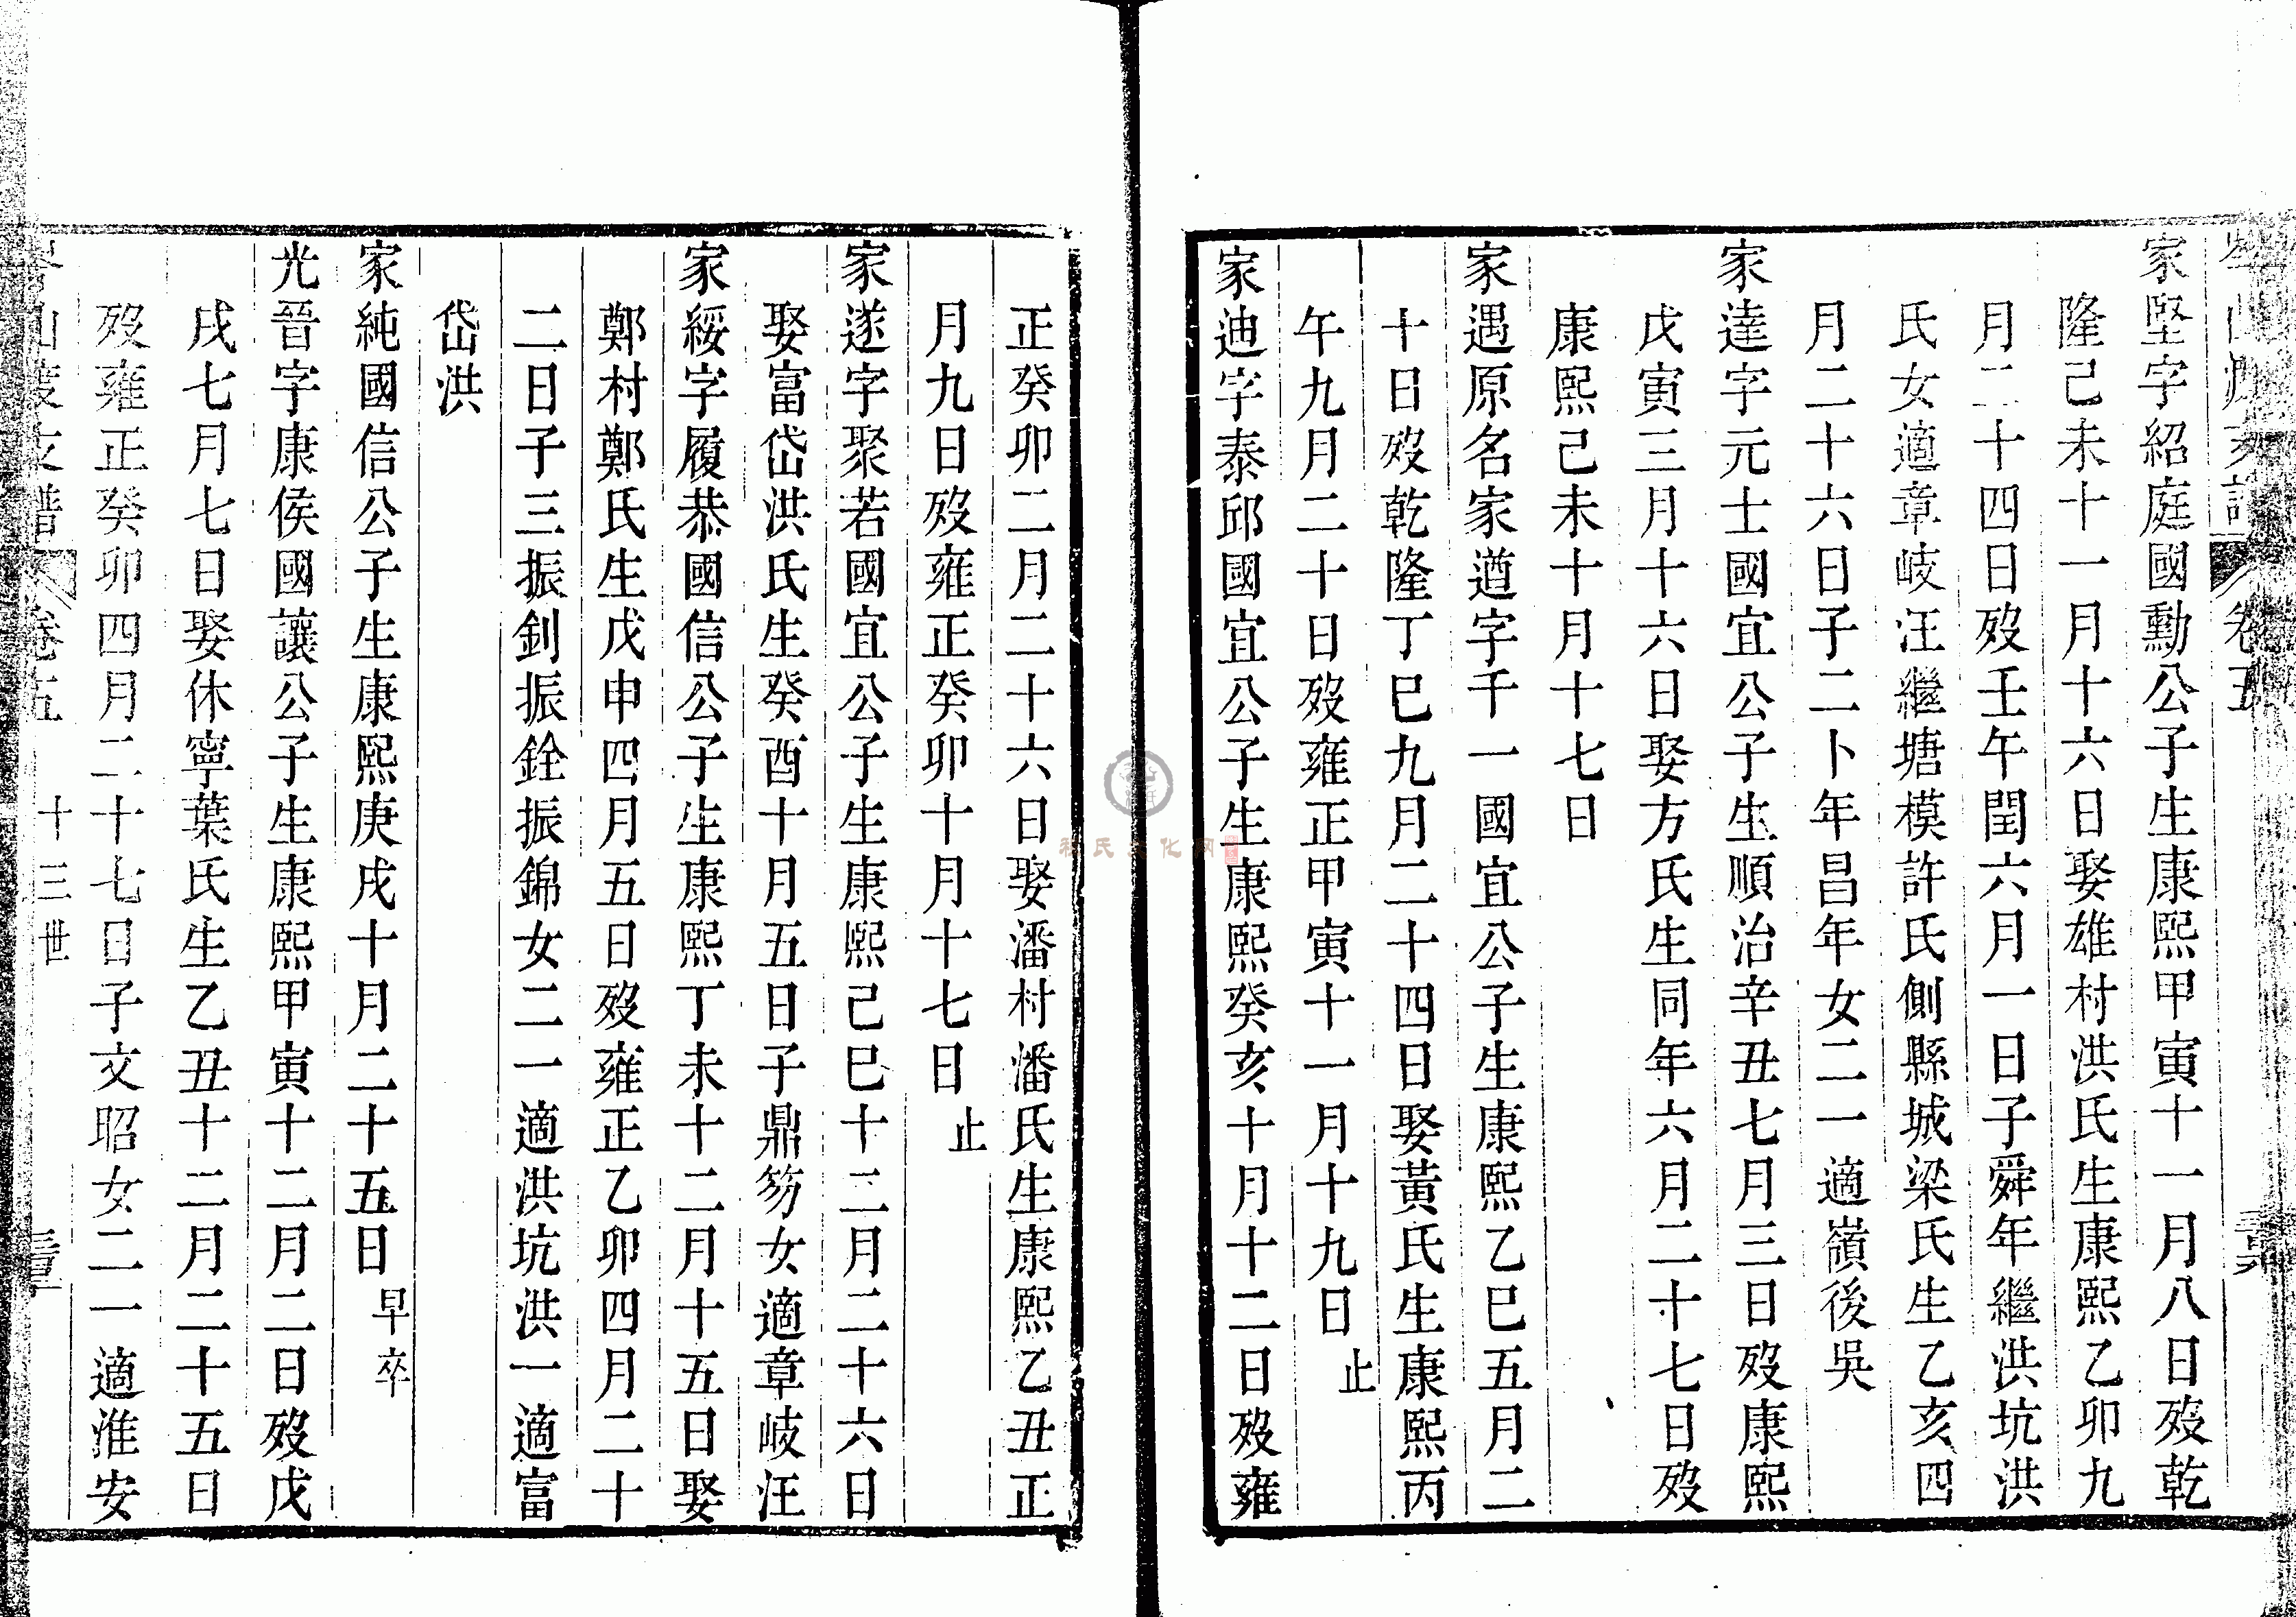 卷五
家堅字紹庭國勳公子生康熙甲寅十一月八日歿乾
隆己未十一月十六日娶雄村洪氏生康熙乙卯九
月二十四日歿壬午閏六月一日子舜年繼洪坑洪
氏女適章岐汪繼塘模許氏側縣城梁氏生乙亥四
月二十六日子二卜年昌年女二一適嶺後吳
家達字元士國宜公子生順治辛丑七月三日歿康熙
戊寅三月十六日娶方氏生同年六月二十七日歿
康熙己未十月十七日
家遇原名家遒字千一國宜公子生康熙乙巳五月二
十日歿乾隆丁巳九月二十四日娶黃氏生康熙丙
午九月二十日歿雍正甲寅十一月十九日止
家迪字泰邱國宜公子生康熙癸亥十月十二日歿雍
正癸卯二月二十六日娶潘村潘氏生康熙乙丑正
月九日歿雍正癸卯十月十七日止
家遂字聚若國宜公子生康熙己巳十二月二十六日
娶富岱洪氏生癸酉十月五日子鼎笏女適章岐汪
家綏字履恭國信公子生康熙丁未十二月十五日娶
鄭村鄭氏生戊申四月五日歿雍正乙卯四月二十
二日子三振釗振銓振錦女二一適洪坑洪一適富
岱洪
家純國信公子生康熙庚戌十月二十五日早卒
光晉字康侯國讓公子生康熙甲寅十二月二日歿戊
戌七月七日娶休寧葉氏生乙丑十二月二十五日
歿雍正癸卯四月二十七日子文昭女二一適淮安
卷五 十三世